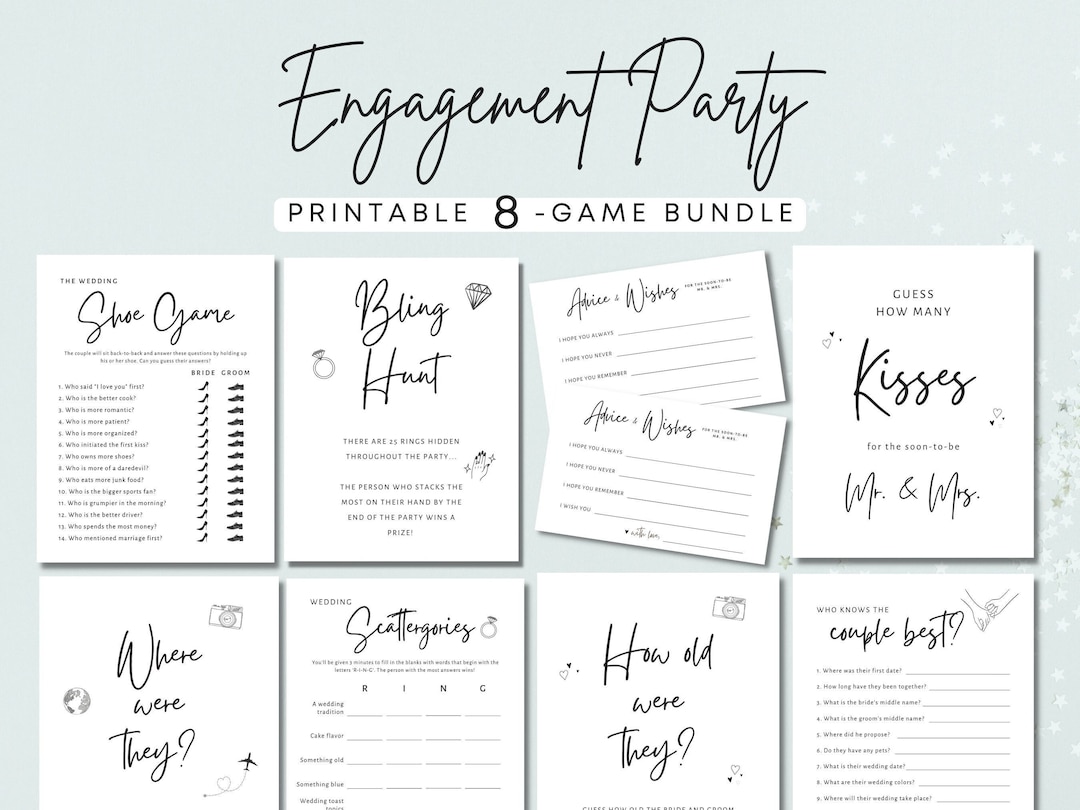 Engagement Party
PRINTABLE 8 -GAME BUNDLE
THE WEDDING
Shoe Game
The couple will sit back-to-back and answer these questions by holding up
his or her shoe. Can you guess their answers?
BRIDE GROOM
1. Who said "I love you" first?
2. Who is the better cook?
3. Who is more romantic?
4. Who is more patient?
5. Who is more organized?
6. Who initiated the first kiss?
7. Who owns more shoes?
8. Who is more of a daredevil?
9. Who eats more junk food?
10. Who is the bigger sports fan?
11. Who is grumpier in the morning?
12. Who is the better driver?
13. Who spends the most money?
14. Who mentioned marriage first?
Bling
Hunt
THERE ARE 25 RINGS HIDDEN
THROUGHOUT THE PARTY...
THE PERSON WHO STACKS THE
MOST ON THEIR HAND BY THE
END OF THE PARTY WINS A
PRIZE!
Advice & Wishes
FOR THE SOON-TO-BE
MR. & MRS.
I HOPE YOU ALWAYS
I HOPE YOU NEVER
I HOPE YOU REMEMBER
Advice & Wishes
FOR THE SOON-TO-BE
MR. & MRS.
I HOPE YOU ALWAYS
I HOPE YOU NEVER
I HOPE YOU REMEMBER
I WISH YOU
with love,
GUESS
HOW MANY
Kisses
for the soon-to-be
Mr. & Mrs.
Where
were
they?
WEDDING
Scattergories
You'll be given 3 minutes to fill in the blanks with words that begin with the
letters 'R-I-N-G'. The person with the most answers wins!
R I N G
A wedding
tradition
Cake flavor
Something old
Something blue
Wedding toast
topics
How old
were
they?
GUESS HOW OLD THE BRIDE AND GROOM
WHO KNOWS THE
couple best?
1. Where was their first date?
2. How long have they been together?
3. What is the bride's middle name?
4. What is the groom's middle name?
5. Where did he propose?
6. Do they have any pets?
7. What is their wedding date?
8. What are their wedding colors?
9. Where will their wedding take place?